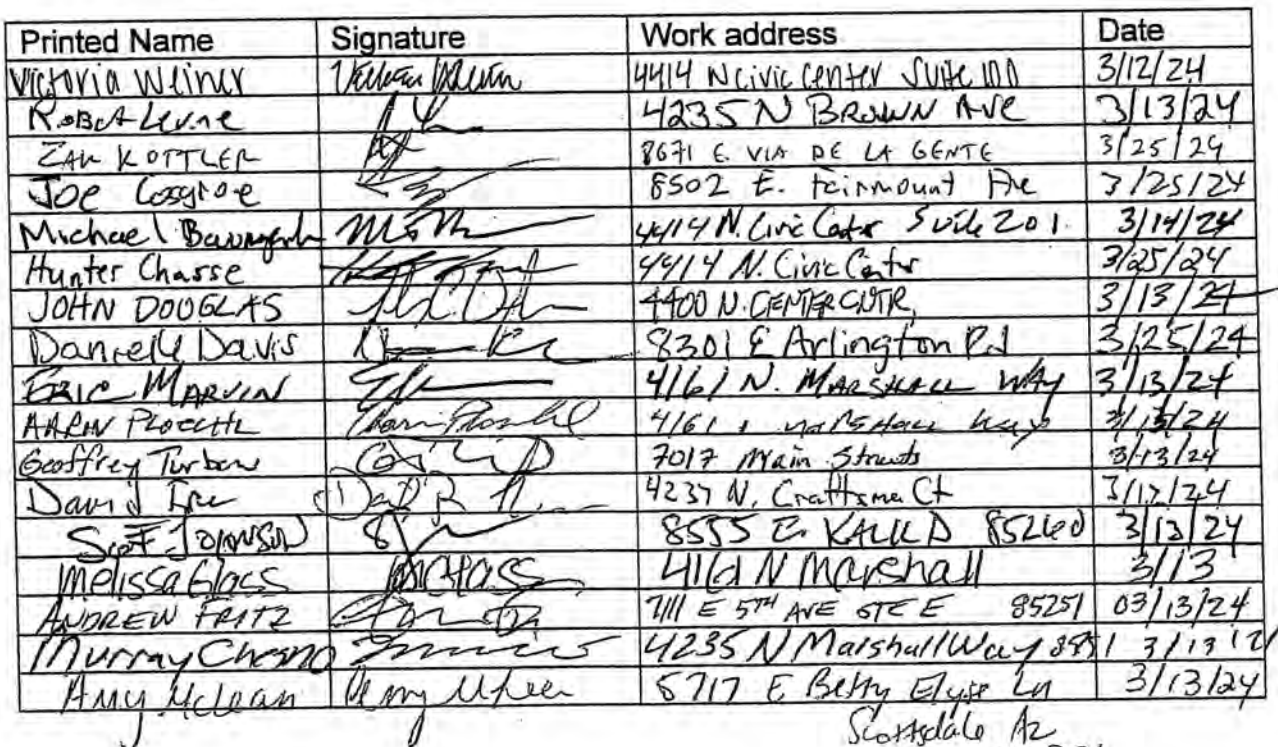 Printed Name Signature Work address Date
Victoria Weiner 4414 N Civic Center Suite 100 3/12/24
Robert Levine 4235 N BROWN AVE 3/13/24
ZAK KOTTLER 8671 E. VIA DE LA GENTE 3/25/24
Joe Cosgrove 8502 E. Fairmount Ave 3/25/24
Michael 4414 N. Civic Suite 201. 3/14/24
Hunter Chasse 4414 N. Civic 3/25/24
JOHN DOUGLAS 4400 N. 3/13/24
Danielle Davis 8301 E Arlington Rd 3/25/24
ERIC MARVIN 4161 N. MARSHALL WAY 3/13/24
4161 Way 3/13/24
Geoffrey Turbow 7017 Main 3/13/24
David 4237 N. Ct 24
Scott JOHNSON 8555 E. 85260 3/13/24
Melissa Glass MGlass 4161 N Marshall 3/13
ANDREW FRITZ 7111 E 5TH AVE STE E 85251 03/13/24
Murray 4235 N Marshall Way 3/13
Amy McLean Amy McLean E Betty Elyse Ln 3/13/24
Scottsdale Az